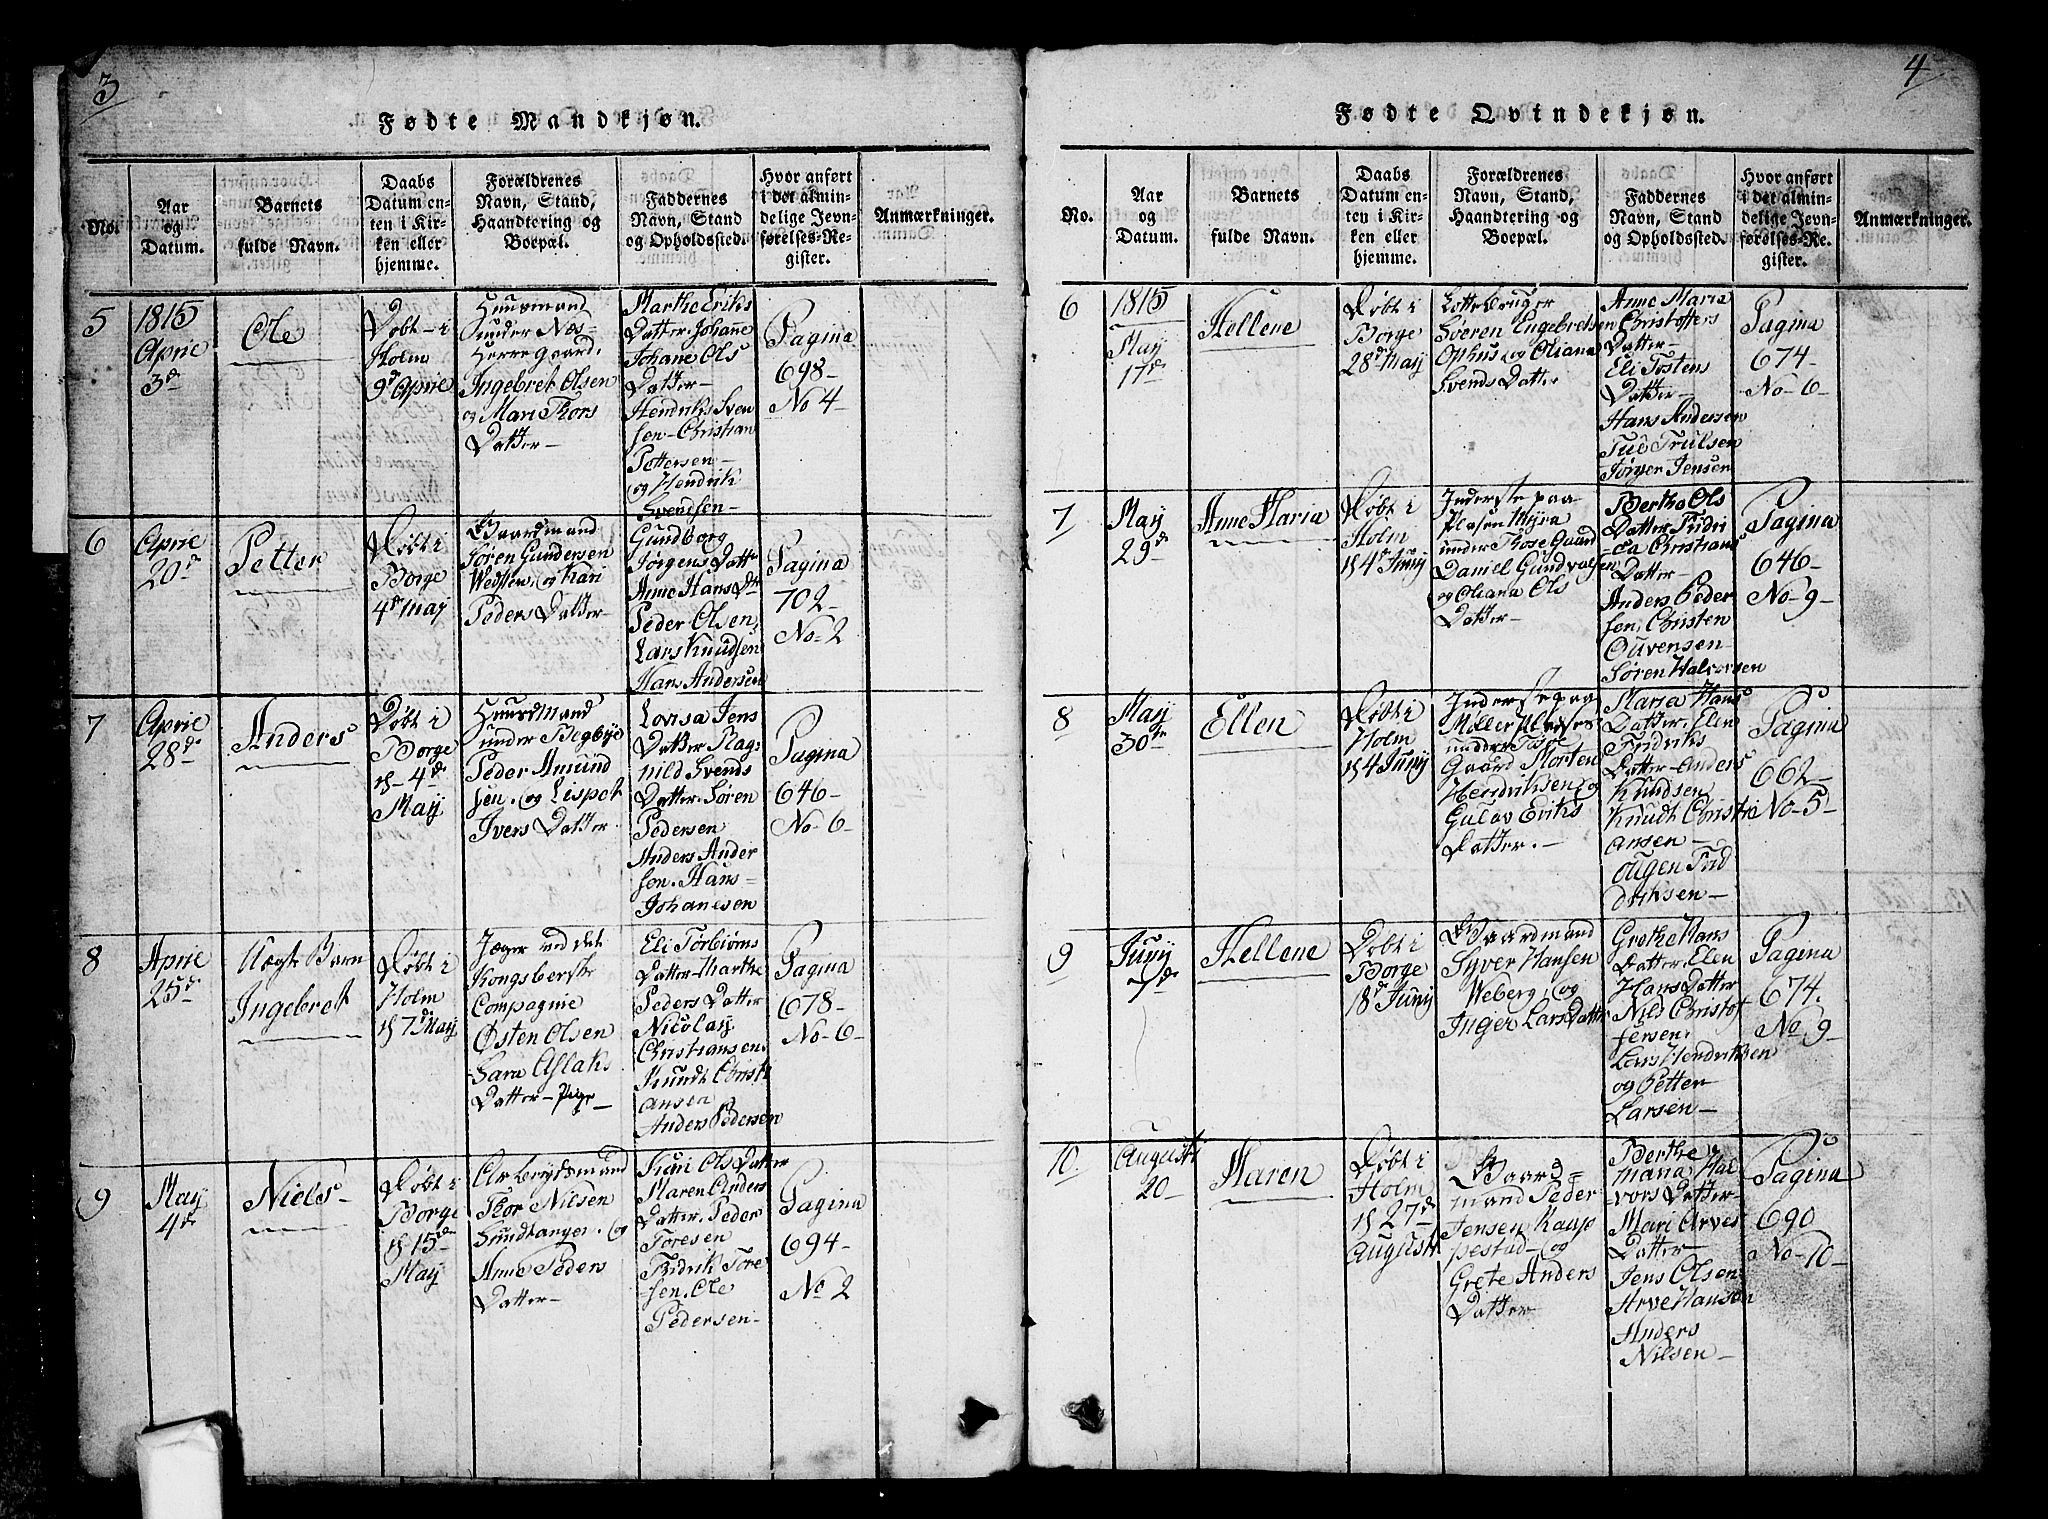 3
Fødte Mandkjøn.
No.
Aar
og
Datum.
Barnets
fulde Navn.
Daabs
Datum en-
ten i Kir-
ken eller
hjemme.
Forældrenes
Navn, Stand,
Haandtering og
Boepæl.
Faddernes
Navn, Stand
og Opholdssted.
Hvor anført
i det almin-
delige Jevn-
førelses-Re-
gister.
Anmærkninger.
5
1815
Aprie
3d
Ole
Døbt i
Holm
9d Aprie
Huusmand
under Næs-
Herre Gaard.
Ingebret Olsen
og Mari Thors
Datter
Marthe Eriks
Datter. Johane
Johane Ols
Datter
Hendriks Sven
sen Christian
Pettersen
og Hendrik
Svendsen
Pagina
698
No 4
6
Aprie
20d
Petter
Døbt i
Borge
4d May
Gaardmand
Søren Gundersen
og Kari
Peders Datter
Gundborg
Jørgens Dattr
Anne Hans Dr
Peder Olsen,
Lars Knudsen
Hans Andersen
Pagina
702
No 2
7
Aprie
28d
Anders
Døbt i
Borge
d 4de
May
Huusmand
under Begbye
Peder Amund
sen. og Lispet
Ivers Datter
Lovisa Jens
Datter Rag-
nild Svends
Datter. Søren
Pedersen
Anders Ander
sen. Hans
Johanesen
Pagina
646
No 6
8
Aprie
25d
Uægte Barn
Ingebret
Døbt i
Holm
d 7d May
Jæger ved det
Kongsbergske
Compagnie
Østen Olsen
Sara Aslaks
Datter Pige
Eli Torbiørns
Datter Marthe
Peders Datter
Nicolay
Christiansen
Knudt Christi
ansen
Anders Pedersen
Pagina
678
No 6
9
May
4de
Niels
Døbt i
Borge
d 15de
May
Arbeydsmand
Thor Nilsen
Sundtangen. og
Anne Peders
Datter
Juri Ols Datter
Maren Anders
Datter. Peder
Toresen
Fridrik Tore
sen. Ole
Pedersen
Pagina
694
No 2
4
Fødte Qvindekjøn.
No.
Aar
og
Datum.
Barnets
fulde Navn.
Daabs
Datum en-
ten i Kir-
ken eller
hjemme.
Forældrenes
Navn, Stand,
Haandtering og
Boepæl.
Faddernes
Navn, Stand
og Opholdssted.
Hvor anført
i det almin-
delige Jevn-
førelses-Re-
gister.
Anmærkninger.
6
1815
May
17de
Hellene
Døbt i
Borge
28d May
Lottebruger
Søeren Engebretsen
Ophus og Oliana
Svends Datter
Anne Maria
Christoffers
Datter
Eli Tostens
Datter
Hans Andersen
Trulsen
Jørgen Jensen
Pagina
674
No 6
7
May
29de
Anne Maria
Døbt i
Holm
d 4d Juny
Inderste paa
Plasen Myra
under Those Gaard
Daniel Gundvalsen
og Oliana Ols
Datter
Berthe Ols
Datter Fridri
ca Christians
Datter
Anders Peder
sen, Christen
Ouvensen
Søren Halvorsen
Pagina
646
No 9
8
May
30te
Ellen
Døbt i
Holm
d 4 Juny
Inderste paa
Møller Plasen
under Tose
Gaard Morten
Hendriksen og
Gulov Eriks
Datter.
Maria Hans
Datter. Elen
Fridriks
Datter Anders
Knudsen
Knudt Christi
ansen
Ougen Frid
driksen
Pagina
662
No 5
9
Juny
7de
Hellene
Døbt i
Borge
18d Juny
Gaardmand
Syver Hansen
Weberg. og
Inger Lars Datter
Grethe Hans
Datter. Elen
Hans Datter
Nils Christof
fersen.
Lars Hendriksen
og Petter
Larsen
Pagina
674.
No 9
10.
August
20
Maren
Døbt i
Holm
d 27de
August
Gaard=
mand Peder
Jensen Raup
pestad og
Grete Anders
Datter
Berthe
Maria Hal
vors Datter
Mari Arves
Datter
Jens Olsen
Arve Hansen
Anders
Nilsen
Pagina
690
No 10